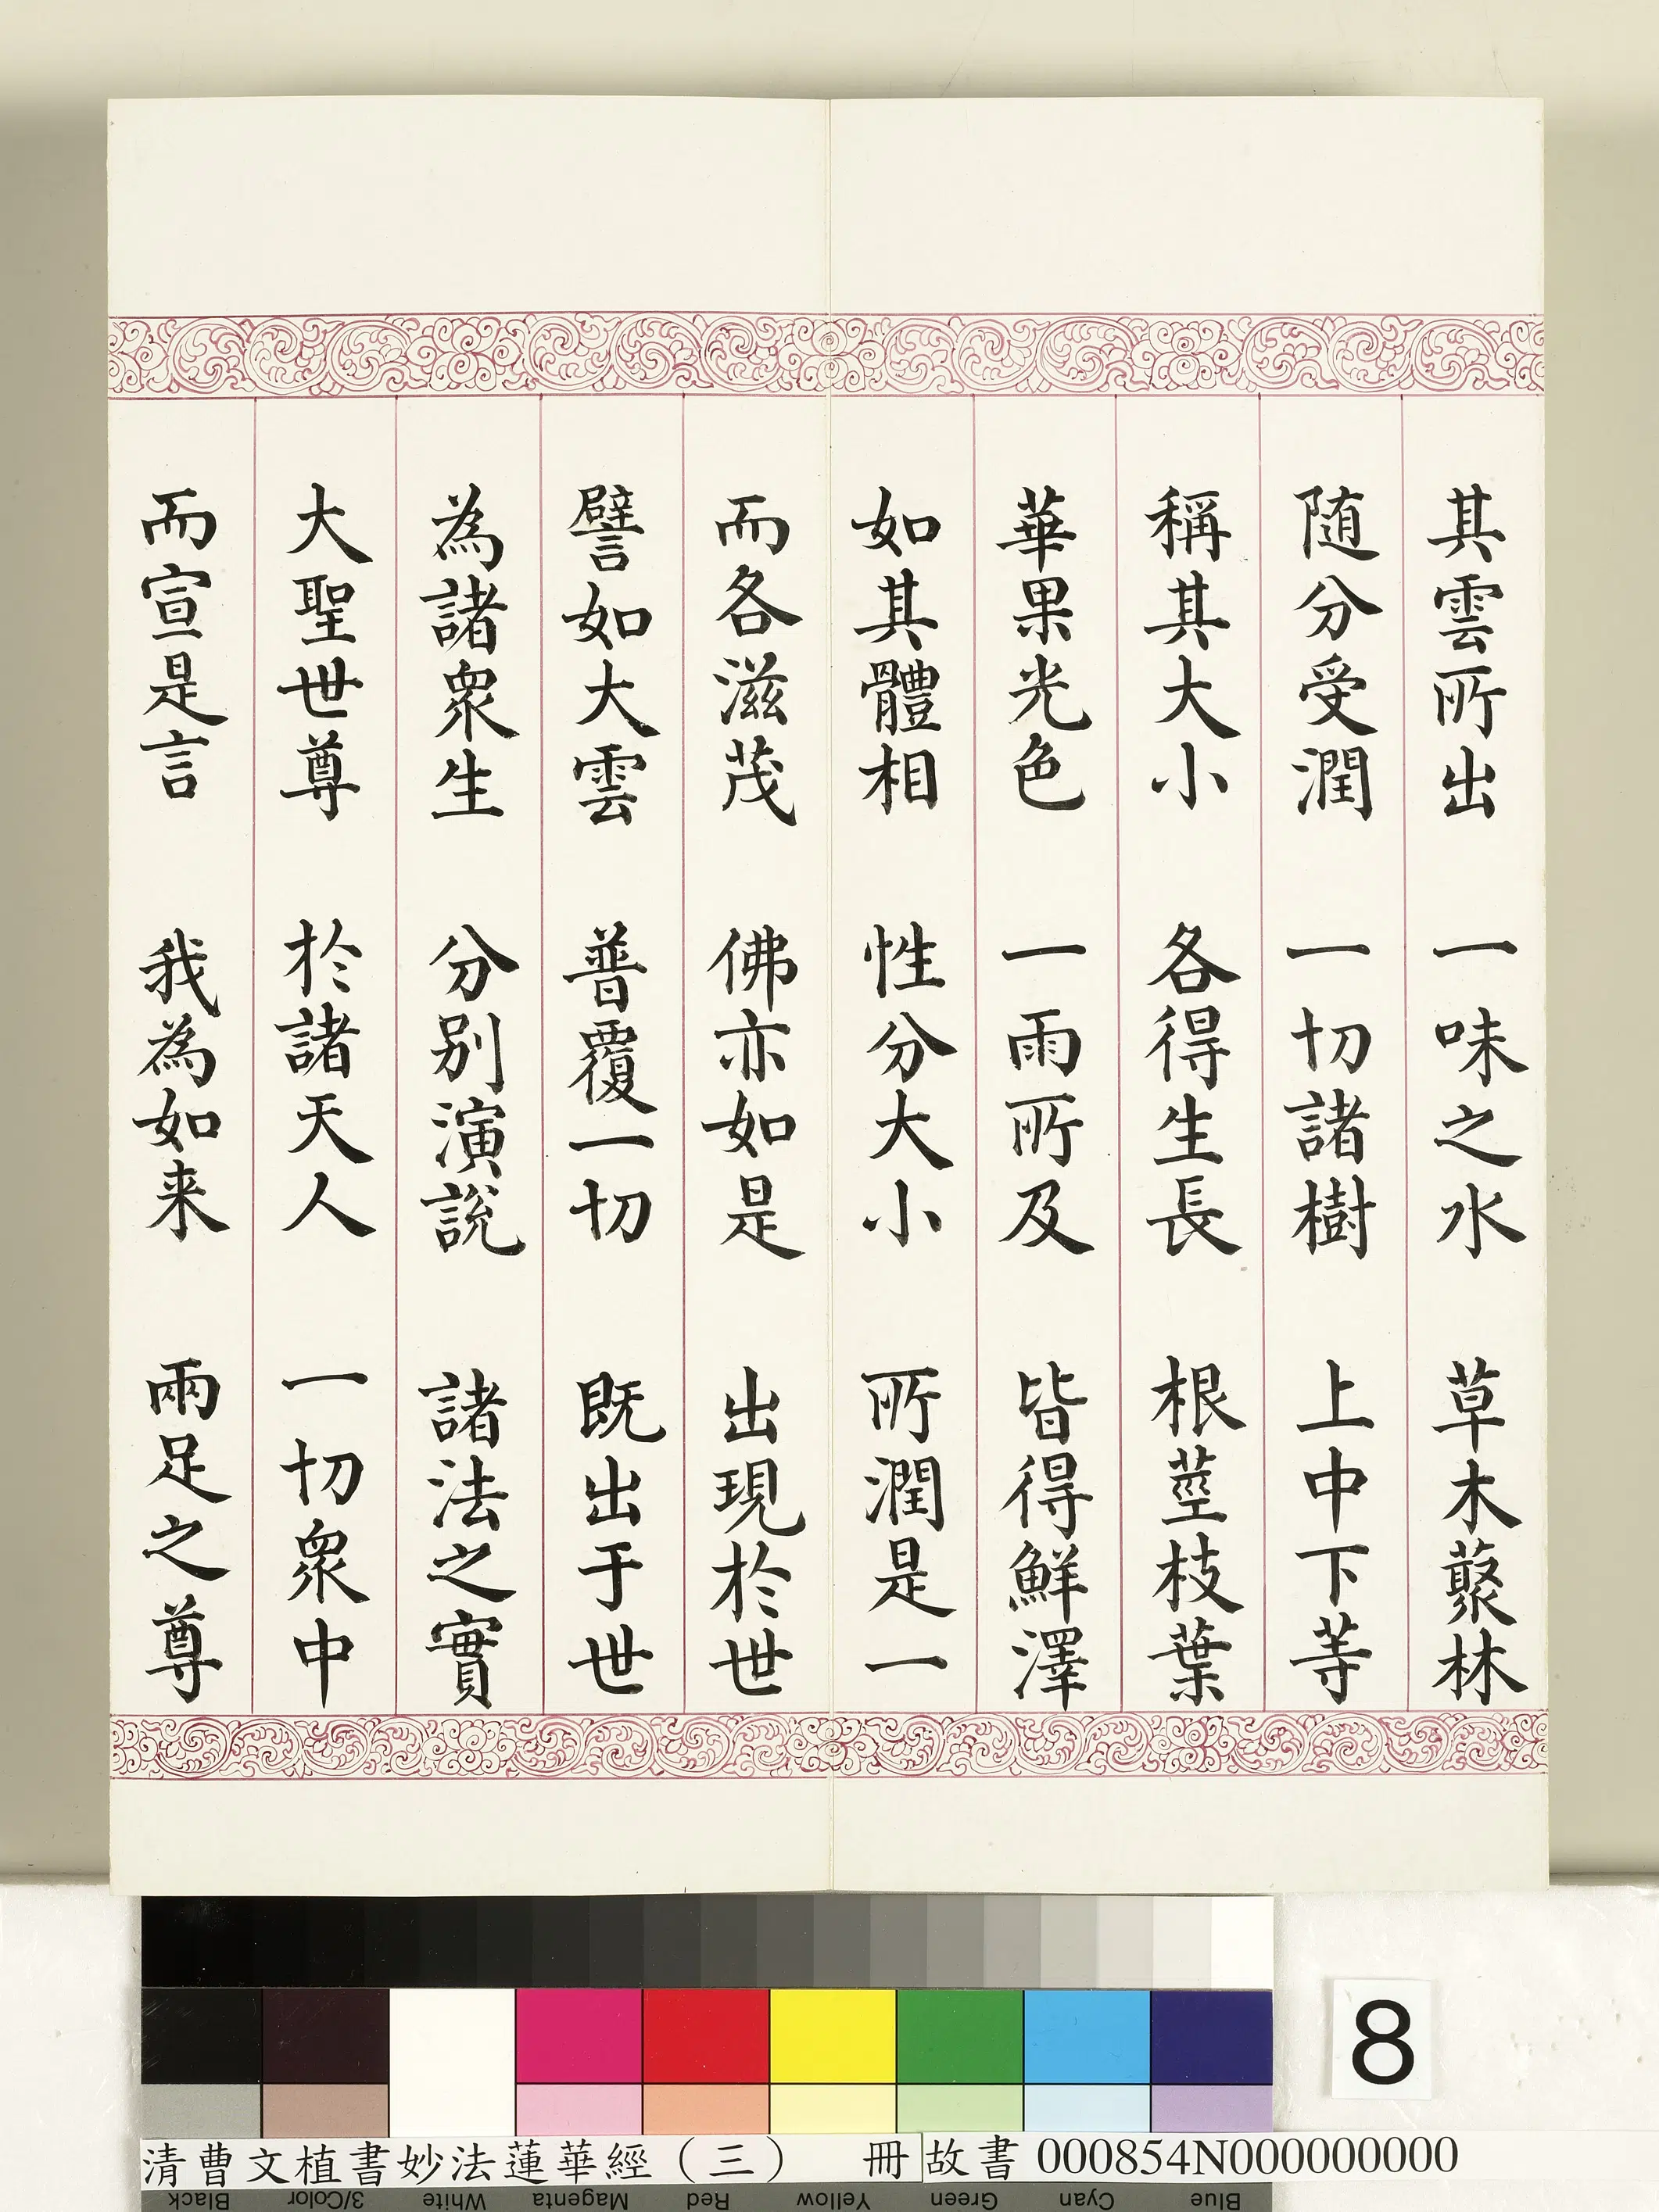 其雲所出 一味之水 草木藂林
随分受潤 一切諸樹 上中下等
稱其大小 各得生長 根莖枝葉
華果光色 一雨所及 皆得鮮澤
如其體相 性分大小 所潤是一
而各滋茂 佛亦如是 出現於世
譬如大雲 普覆一切 既出于世
為諸衆生 分别演說 諸法之實
大聖世尊 於諸天人 一切衆中
而宣是言 我為如来 兩足之尊
8
清曹文植書妙法蓮華經（三） 冊 故書 000854N000000000
Black 3/Color White Magenta Red Yellow Green Cyan Blue